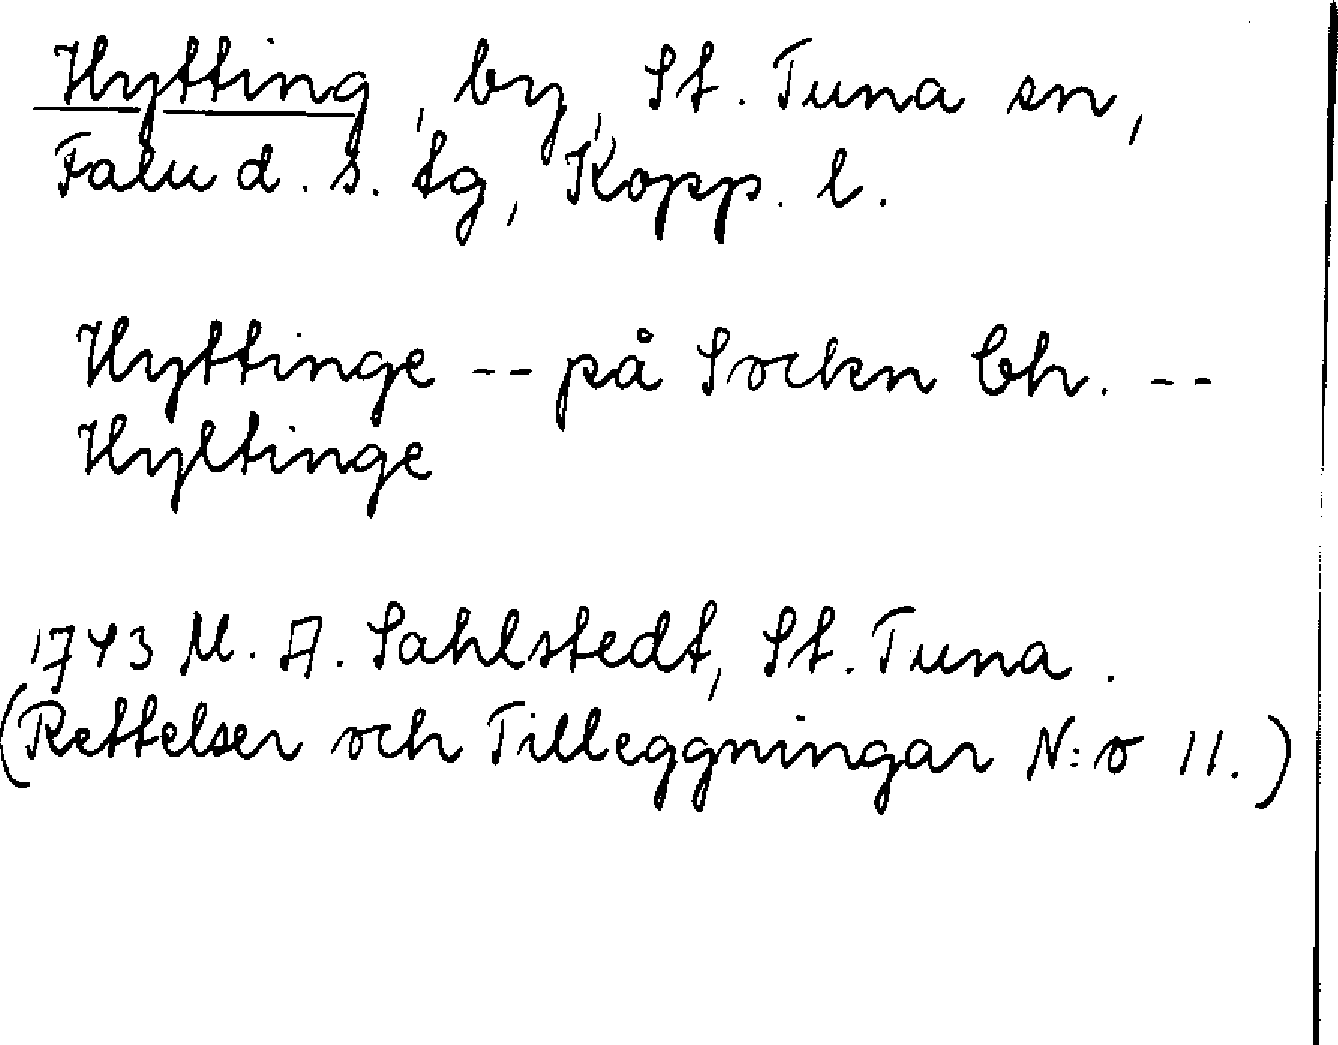 Hytting, by, St. Tuna sn,
Falu d. s. tg, Kopp. l.
Hyttinge -- på Sockn Ch. --
Hyltinge
1743 M. A. Sahlstedt, St. Tuna.
(Rettelser och Tilleggningar N:o 11.)